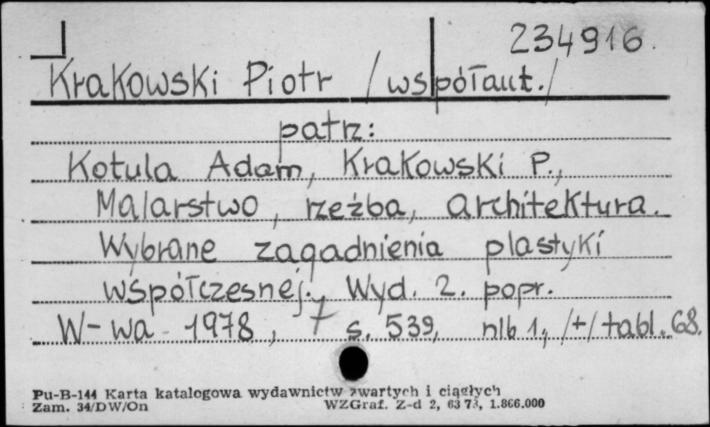 234916.
Krakowski Piotr /współaut./
patrz:
Kotula Adam, Krakowski P.,
Malarstwo, rzeźba, architektura.
Wybrane zagadnienia plastyki
współczesnej. Wyd. 2. popr.
W-wa 1978, s. 539, nlb 1, /+/ tabl. 68.
Pu-B-144 Karta katalogowa wydawnictw zwartych i ciągłych
Zam. 34/DW/On WZGraf. Z-d 2, 63 73, 1.866.000